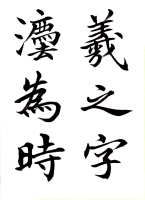 羲之字
灋為時